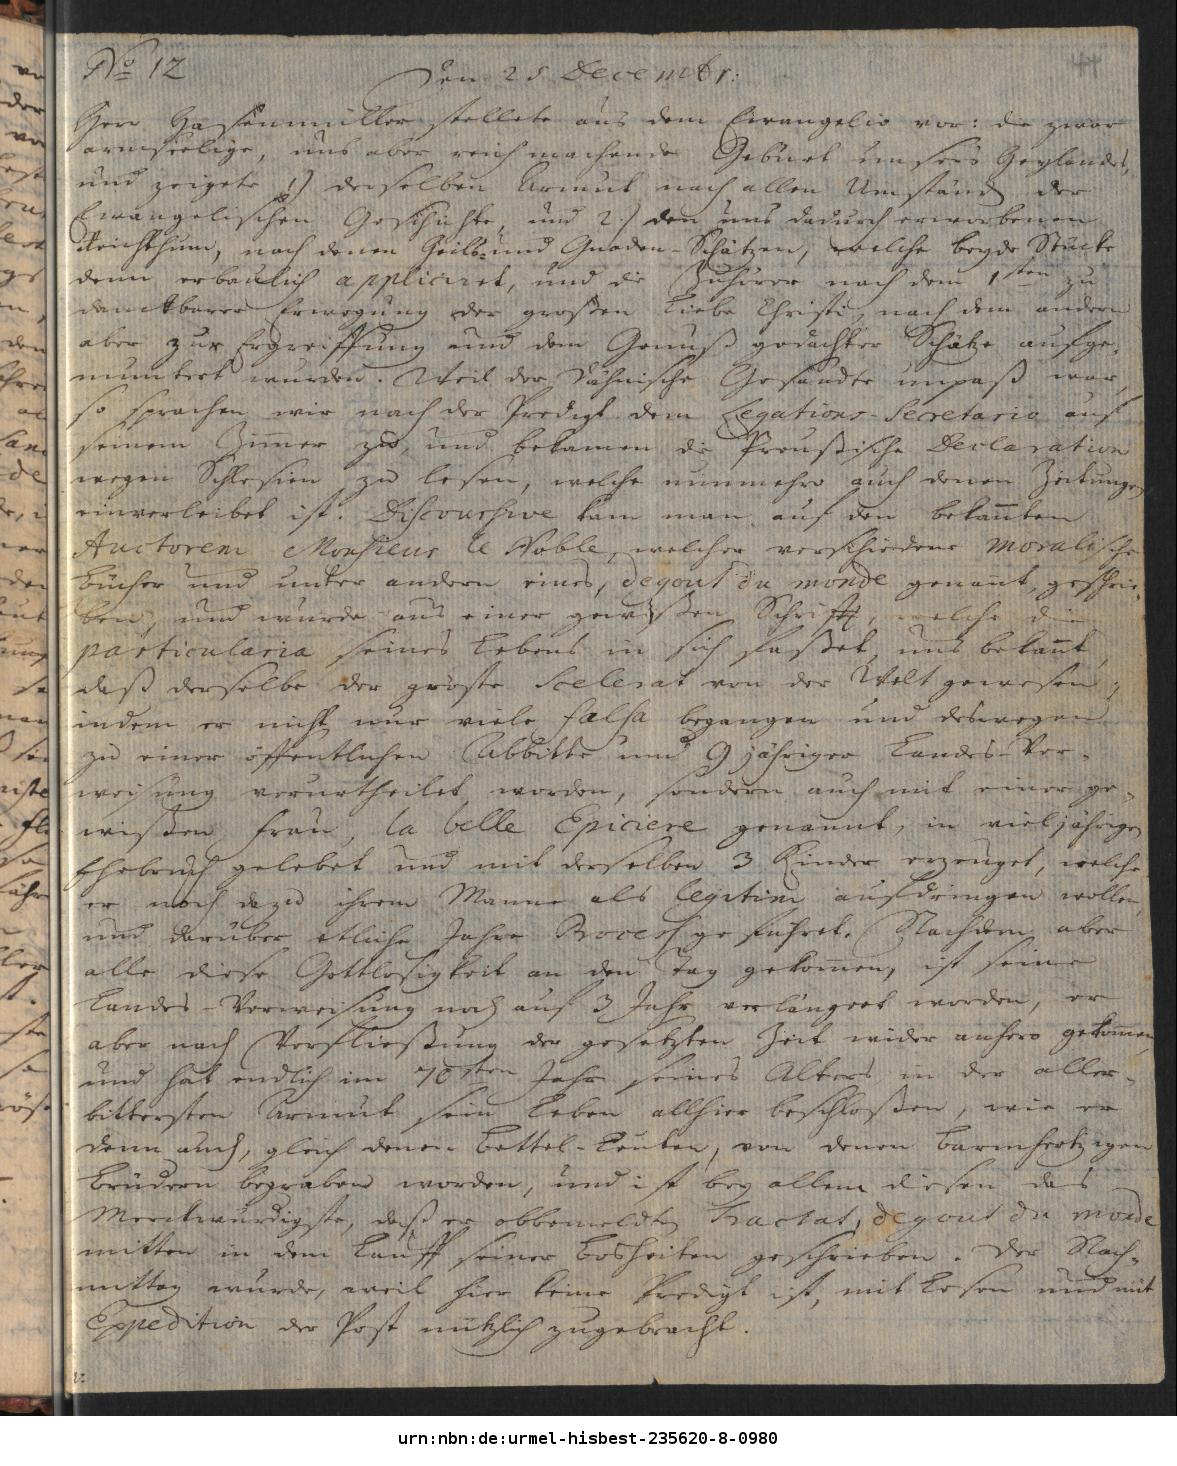 No 12
Den 25 Decembr:
Herr Hasenmüller stellete aus dem Evangelio vor: die zwar
armseelige, uns aber reich machende Geburt unsers Heylandes,
und zeigete 1) derselben Armut nach allen Umständen der
Evangelischen Geschichte, und 2.) den uns dadurch erworbenen
Reichthum, nach denen Heils- und Gnaden-Schätzen, welche beyde Stücke
denn erbaulich appliciret, und die Zuhörer nach dem 1sten zu
danckbarer Erwegung der großen Liebe Christi, nach dem andern
aber zur Ergreiffung und dem Genuß gedachter Schätze aufge-
muntert wurden. Weil der Dähnische Gesandte unpaß war,
so sprachen wir nach der Predigt dem Legations-Secretario auf
seinem Zimer zu, und bekamen die Preußische Declaration
wegen Schlesien zu lesen, welche nunmehro auch denen Zeitungen
einverleibet ist. Discoursive kam man auf den bekanten
Auctorem Monsieur le Noble, welcher verschiedene moralische
Bücher und unter andern eines, degout du monde genant, geschrie-
ben, und wurde aus einer gewißen Schrifft, welche die
particularia seines Lebens in sich faßet, uns bekant,
daß derselbe der gröste Scelerat von der Welt gewesen;
indem er nicht nur viele falsa begangen und deswegen
zu einer öffentlichen Abbitte und 9 jähriger Landes-Ver-
weisung verurtheilet worden, sondern auch mit einer ge-
wißen Frau, la belle Epiciere genannt, in vieljährigen
Ehebruch gelebet und mit derselben 3 Kinder erzeuget, welche
er noch dazu ihrem Manne als legitim aufdringen wollen,
und darüber etliche Jahre Process geführet. Nachdem aber
alle diese Gottlosigkeit an den Tag gekomen, ist seine
Landes-Verweisung noch auf 3 Jahr verlängert worden, er
aber nach Verfließung der gesetzten Zeit wider anhero gekomen,
und hat endlich im 70sten Jahr seines Alters in der aller-
bittersten Armut sein Leben allhier beschloßen, wie er
denn auch, gleich denen Bettel-Leuten, von denen barmhertzigen
Brüdern begraben worden, und ist bey allem diesen das
Merckwürdigste, daß er obbemeldten Tractat, degout du monde
mitten in dem Lauff seiner Bosheiten geschrieben. Der Nach-
mittag wurde, weil hier keine Predigt ist, mit Lesen und mit
Expedition der Post nützlich zugebracht.
urn:nbn:de:urmel-hisbest-235620-8-0980